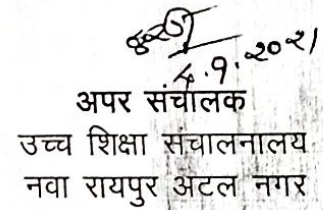 अपर संचालक
उच्च शिक्षा संचालनालय
नवा रायपुर अटल नगर